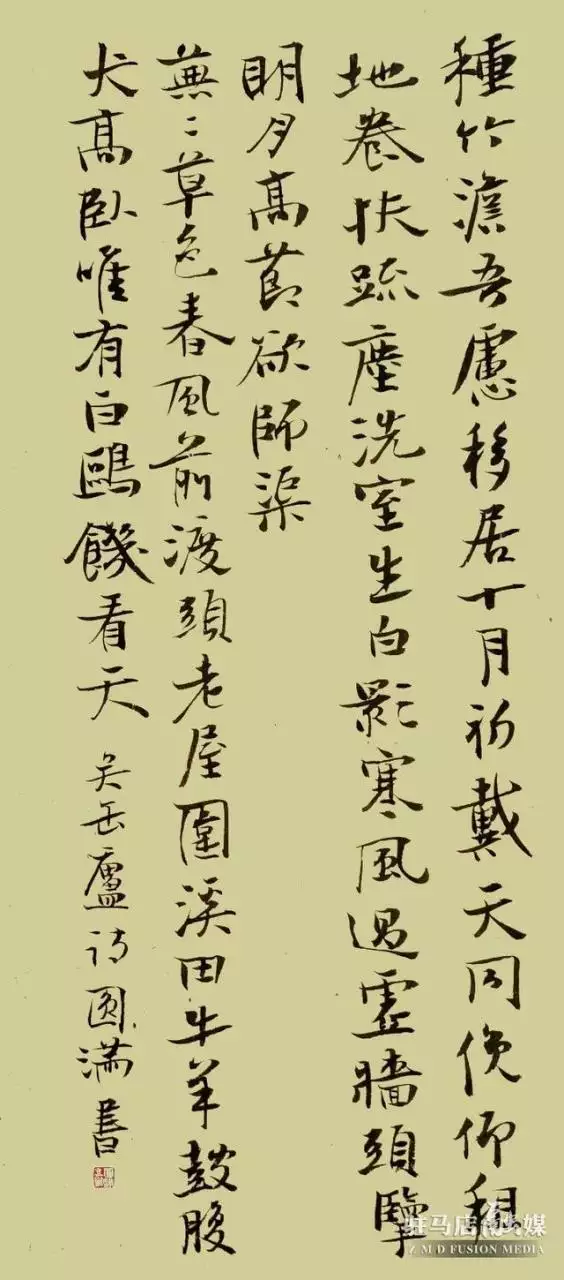 種竹澹吾慮移居十月初戴天同俛仰租
地卷扶疏塵洗室生白影寒風過虛牆頭擥
明月高節欲師渠
蕪〻草色春風前渡頭老屋圍溪田牛羊鼓腹
犬高臥唯有白鷗饑看天 吳缶廬詩圓滿書
驻马店融媒
Z M D FUSION MEDIA